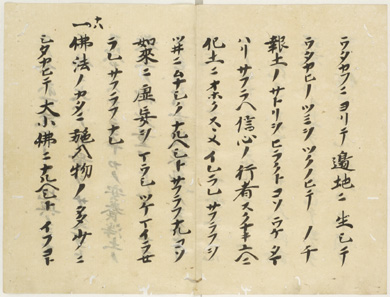 ウタカフニヨリテ邊地ニ生シテ
ウタカヒノツミヲツクノヒテノチ
報土ノサトリヲヒラクトコソウケタマ
ハリサフラヘ信心ノ行者スクナキユヘニ
化土ニオホクスヽメイレラレサフラフヲ
ツヰニムナシクナルヘシトサフラフナルコソ
如來ニ虚妄ヲツケマイラセ
ラレサフラフナレ
一佛法ノカタニ施入物ノ多少ニ
シタカヒテ大小佛ニナルヘシトイフコト